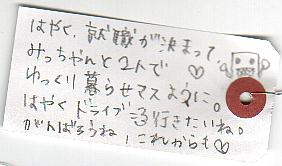 はやく、就職が決まって、
みっちゃんと2人で♡
ゆっくり暮らせマスように。
はやくドライブ行きたいね。
がんばろうね!これからも♡